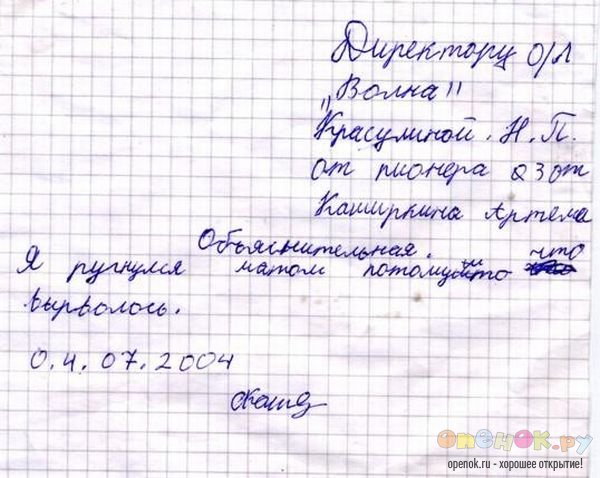 Директору О/Л
"Волна"
Красулиной. Н. П.
от пионера 23 от
Каширкина Артёма
Объяснительная.
Я ругнулся матом потомушто что
вырволось.
0.4.07.2004
ОПЕНОК.РУ
openok.ru - хорошее открытие!